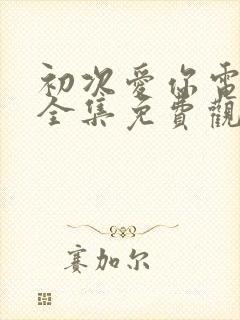 初次愛你電
全集免費觀
賽加尔